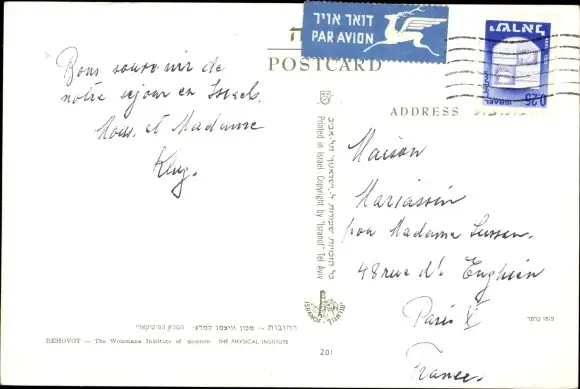 דואר אויר
PAR AVION
POSTCARD
ישראל
0.25 ISRAEL
ADDRESS
Bons souvenir de
notre séjour en Israel.
Mons. et Madame
Klug.
Printed in Israel - Copyright by "Isranof" Tel Aviv
Maison
Mariassin
pou Madame Sussen.
48 rue d' Enghien
Paris X
France.
ISRANOF
רחובות — מכון וייצמן למדע. המכון הפיסיקאי
REHOVOT — The Weizmann Institute of Science. THE PHYSICAL INSTITUTE
201